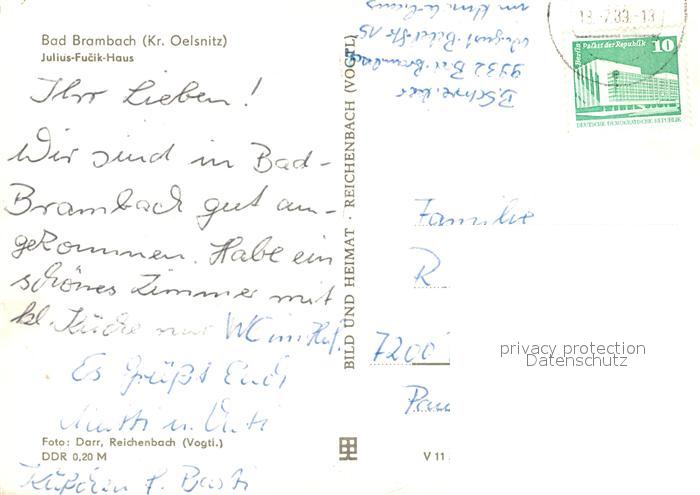 Bad Brambach (Kr. Oelsnitz)
Julius-Fučik-Haus
Ihr Lieben!
Wir sind in Bad-
Brambach gut an-
gekommen. Habe ein
schönes Zimmer mit
kl. Küche nur WC im Hof.
Es grüßt Euch
Mutti u. Vati
Küßchen f. Basti
Foto: Darr, Reichenbach (Vogtl.)
DDR 0,20 M
BILD UND HEIMAT · REICHENBACH (VOGTL)
V 11
9932 Bad Brambach
August-Bebel-Str 15
13.-7.89.-13
Berlin Palast der Republik
10
DEUTSCHE DEMOKRATISCHE REPUBLIK
Familie
R
7200
privacy protection
Datenschutz